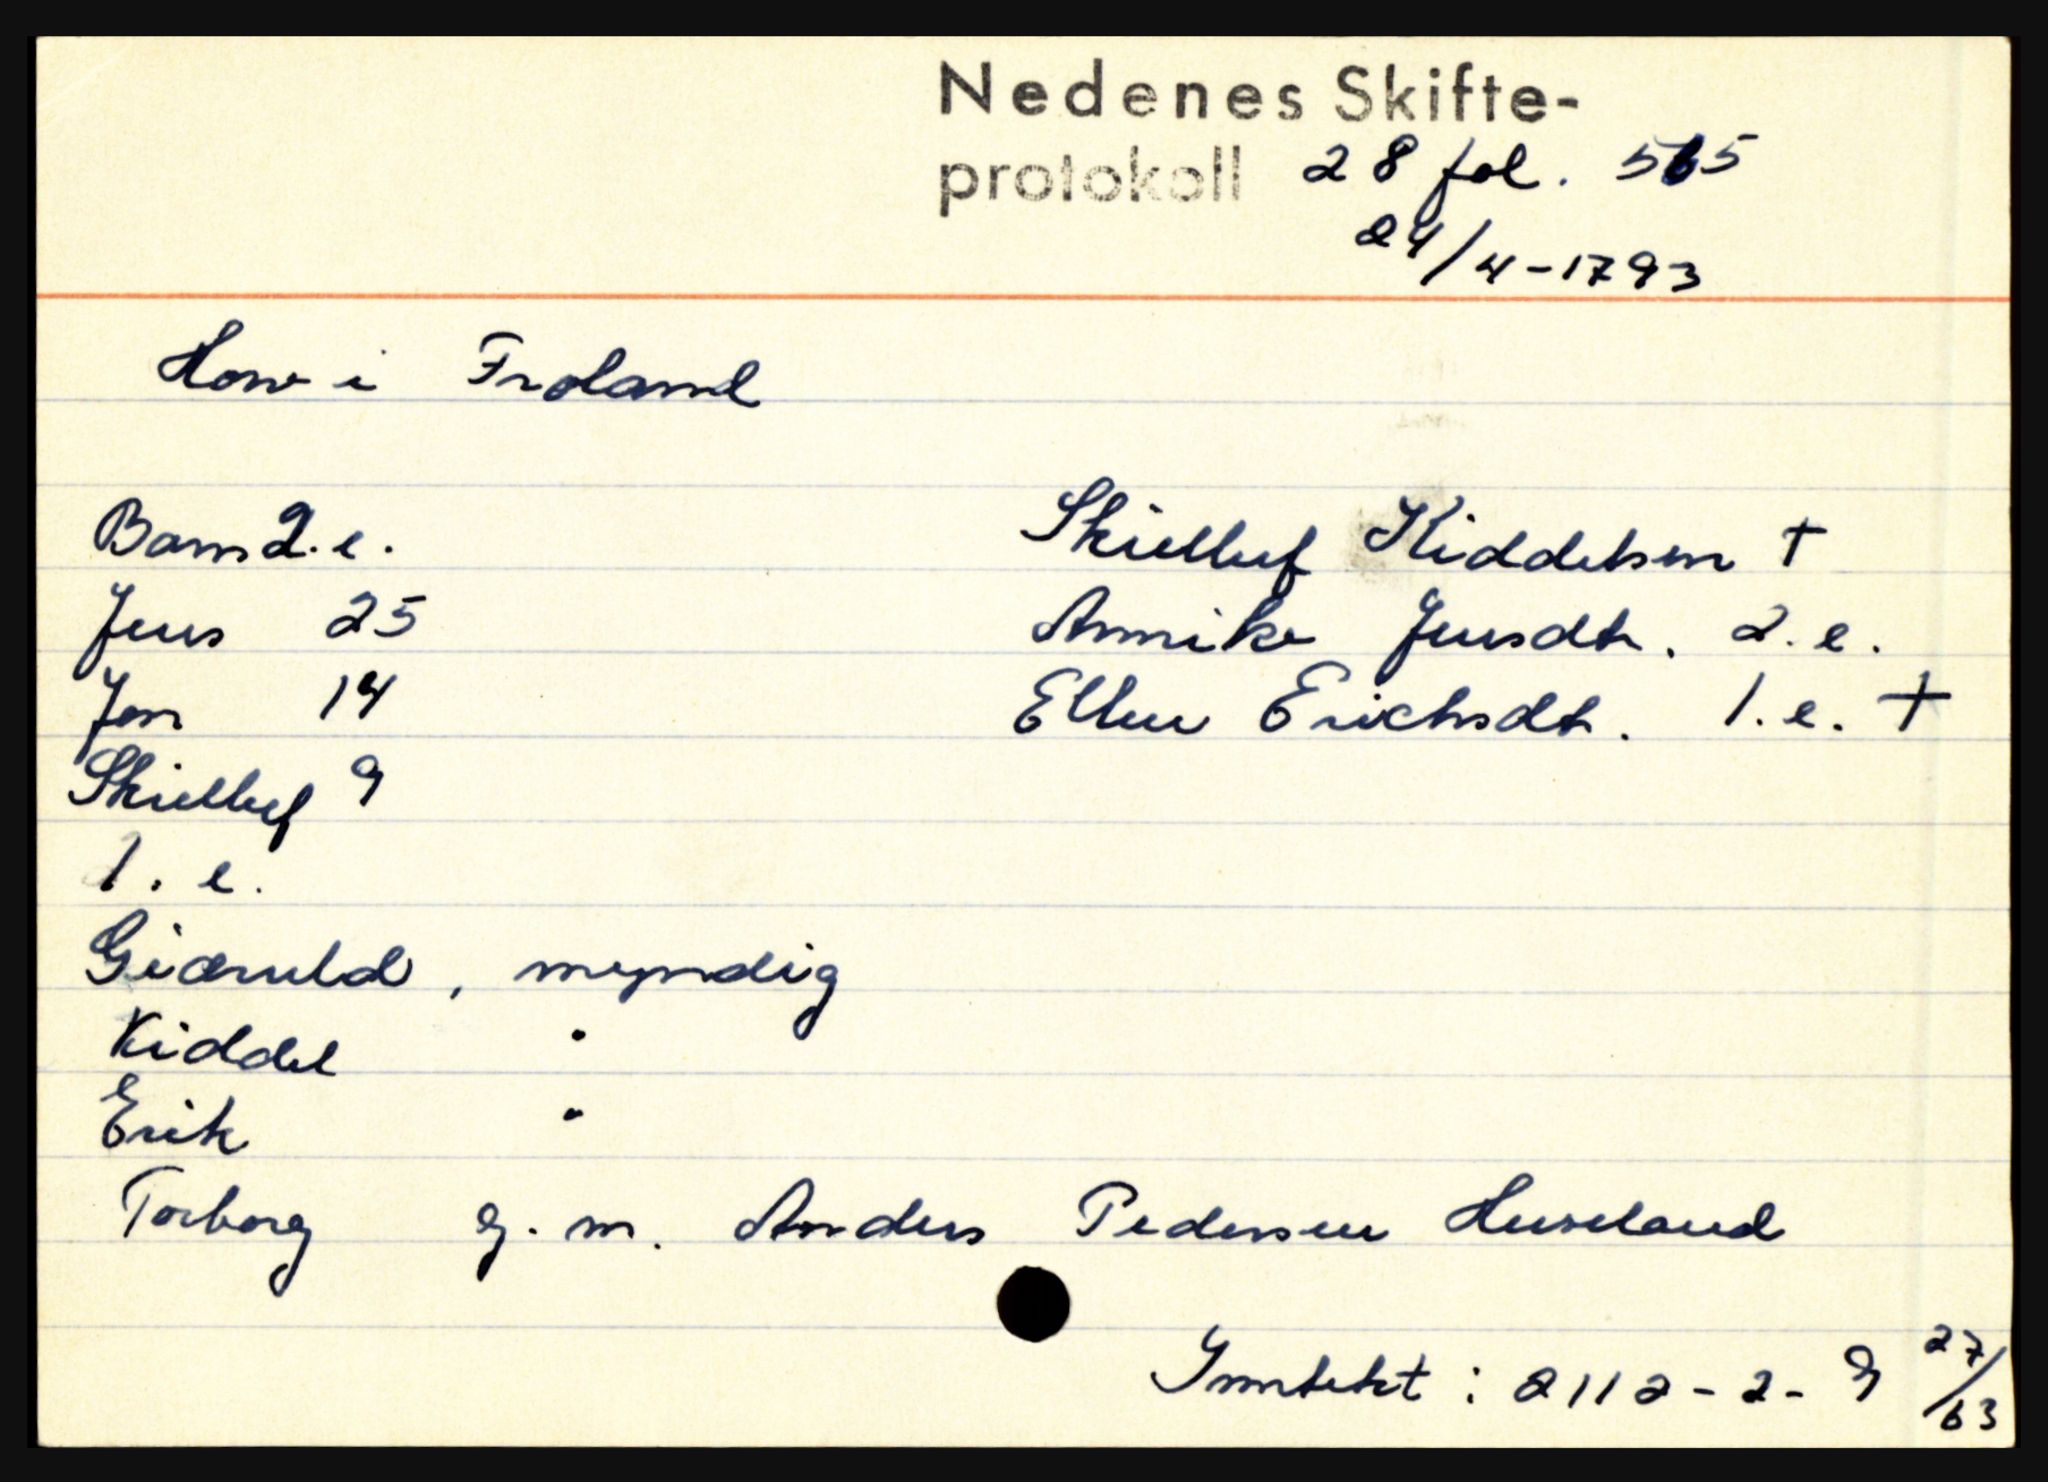 Nedenes Skifte-
protokoll 28 fol. 565
24/4-1793
How i Froland
Barn 2. e. Skielluf Kiddelsen †
Jens 25 Annike Jensdtr. 2. e.
Jon 14 Ellen Erichsdtr. 1. e. †
Skielluf 9
1. e.
Gieruld, myndig
Kiddel "
Erik "
Torborg g. m. Anders Pedersen Huseland
Inntekt: 2112-2-9 27/63